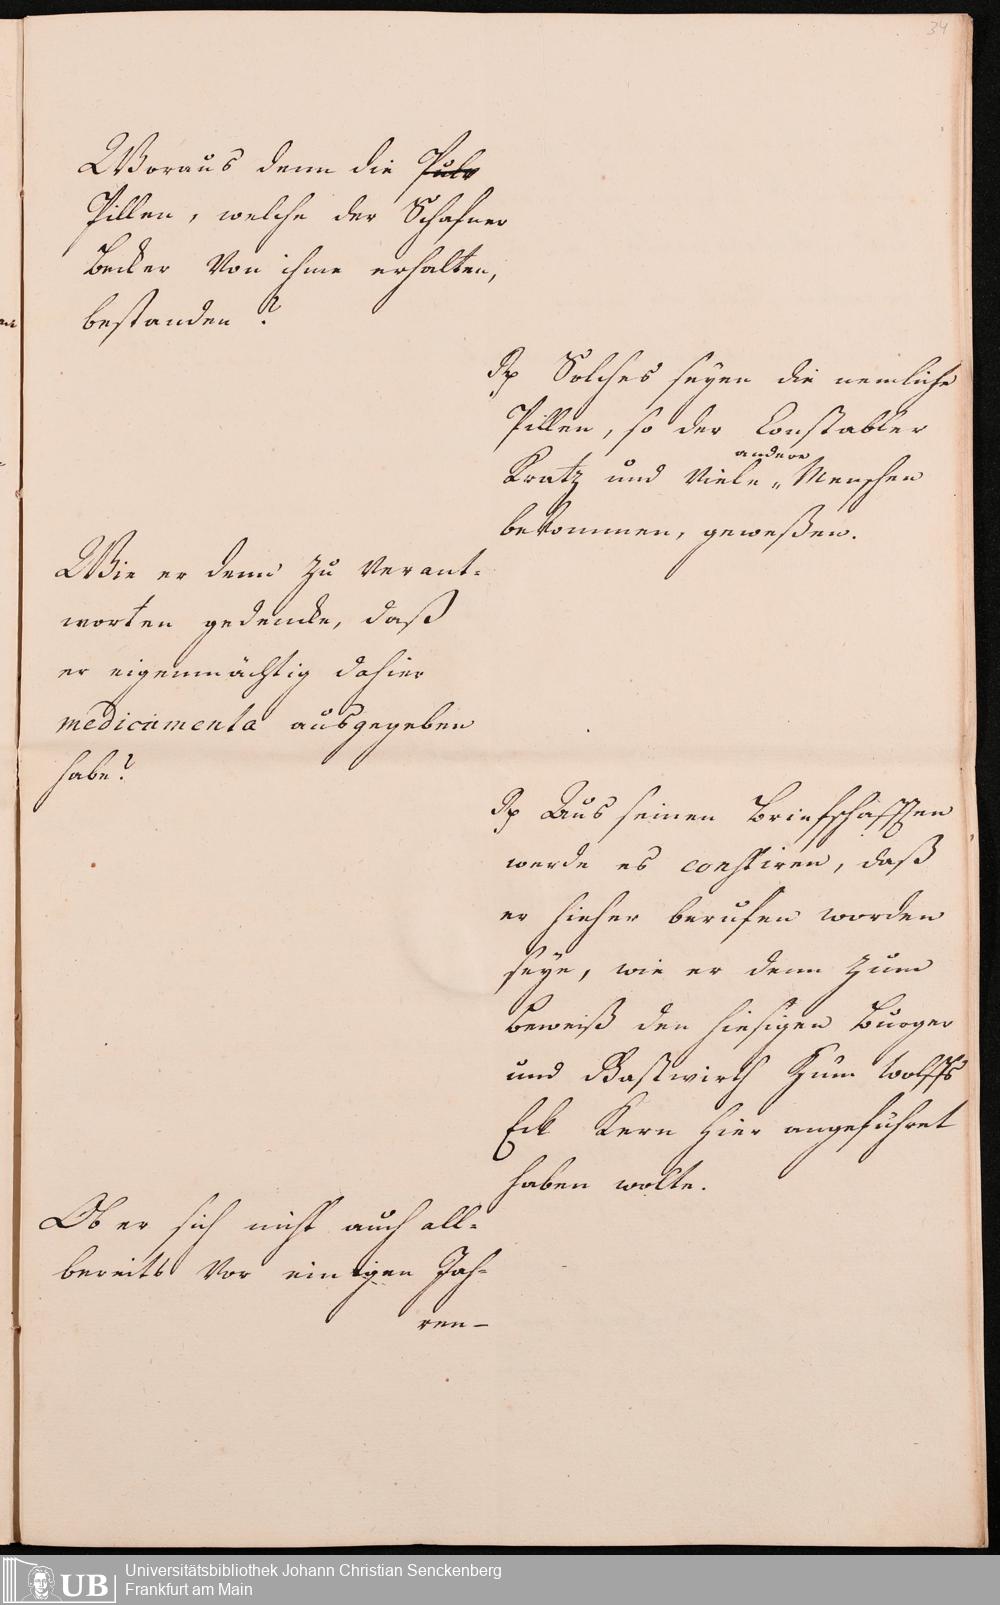 34
Woraus denn die Pulv
Pillen, welche der Schafner
Becker von ihme erhalten,
bestanden?
Rp Solches seyen die nemliche
Pillen, so der Constabler
andere
Kratz und viele „ Menschen
bekommen, geweßen.
Wie er denn zu verant-
worten gedencke, daß
er eigenmächtig dahier
medicamenta ausgegeben
habe?
Rp Aus seinen Briefschafften
werde es constiren, daß
er hieher berufen worden
seye, wie er denn zum
Beweiß den hiesigen Burger
und Gastwirth zum Wolffs
Eck Kern hier angeführet
haben wolte.
Ob er sich nicht auch all-
bereits vor einigen Jah-
ren-
Universitätsbibliothek Johann Christian Senckenberg
Frankfurt am Main
UB